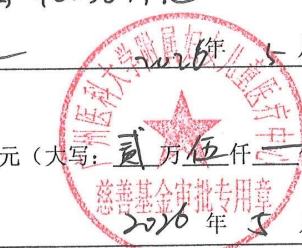 2026年 5
广州医科大学附属妇女儿童医疗中心
元（大写：贰万伍仟
慈善基金审批专用章
2026年 5